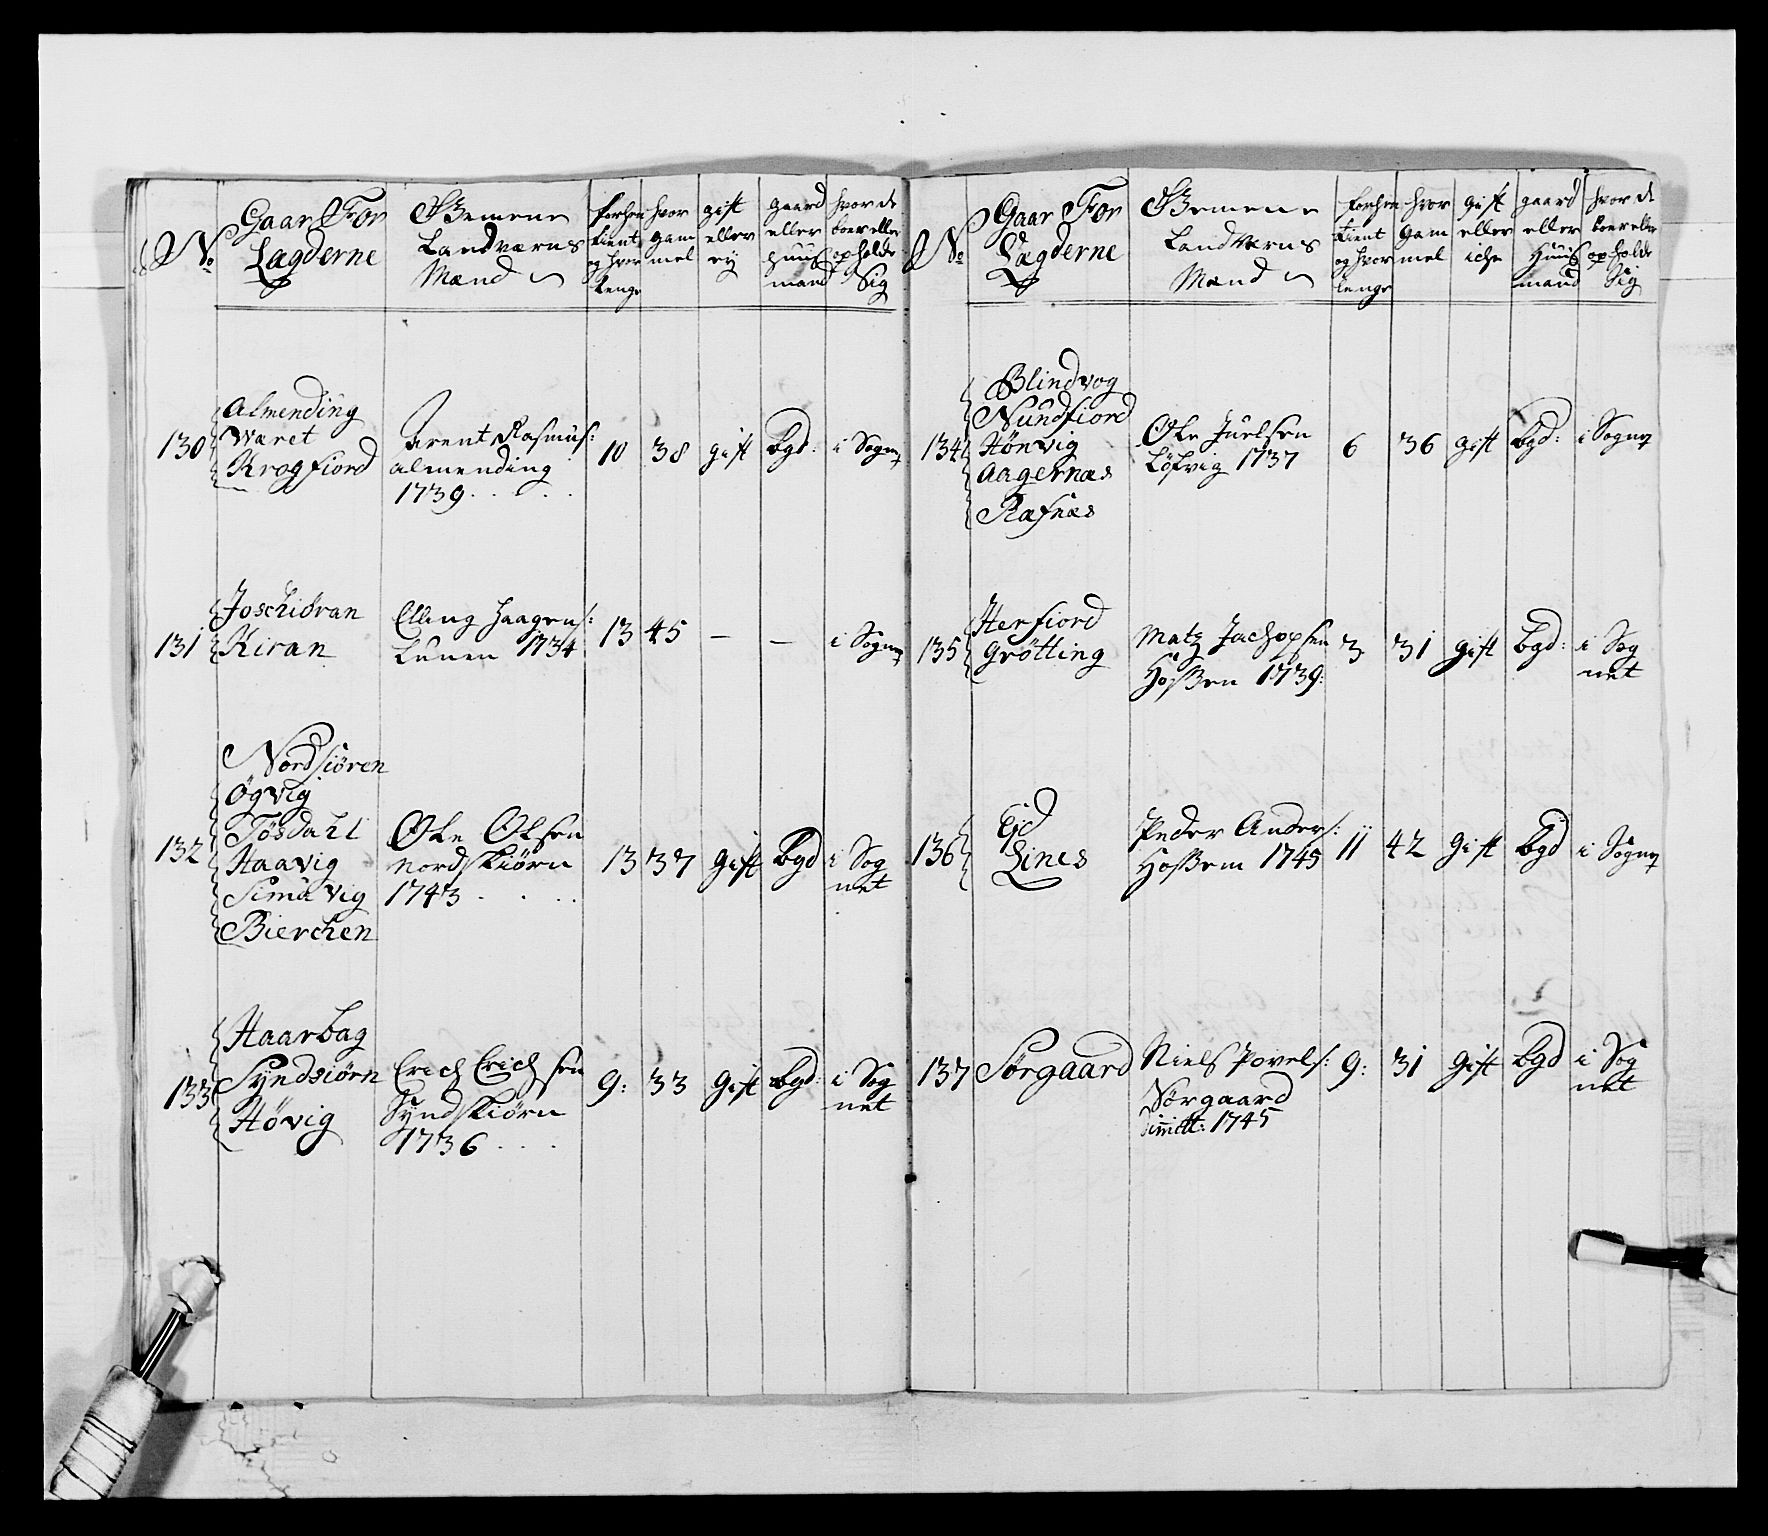 No
Gaar For
Lagderne
Gemene
Landværns
Mænd
forhen
tient
og hvor
lenge
hvor
gam
mel
gift
eller
ey
gaard
eller
huus
mand
hvor de
boer eller
opholde
Sig
130
Almending
Wæret
Krogfiord
Arent Rasmus:
almending
1739
10
38
gift
bgd:
i Sogn
131
Joschiøran
Kiran
Elling Haagens:
Lunen 1734
13
45
—
—
i Sogn
132
Nordsiøren
Øgvig
Tøsdahl
Haavig
Simavig
Bierchen
Ole Olsen
nordskiørn
1743
13
37
gift
bgd
i Sog
net
133
Haarbag
Syndsiørn
Høvig
Erich Erichsen
Syndskiørn
1736
9:
33
gift
bgd:
i Sog
net
No
Gaar For
Lægderne
Gemene
Landværns
Mænd
forhen
tient
og hvor
lenge
hvor
gam
mel
gift
eller
iche
gaard
eller
Huus
mand
hvor de
boer eller
opholde
Sig
134
Blindvog
Nundfiord
Hønvig
Aagernæs
Rafnæs
Ole Juelsen
Løfvig 1737
6
36
gift
bgd:
i Sogn
135
Herfiord
Grøtting
Matz Jachopsen
Hossen 1739:
3
31
gift
bgd:
i Sog
net
136
Eid
Lines
Peder Anders:
Hossem 1745
11
42
gift
bgd
i Sogn
137
Sørgaard
Niels Povels:
Sørgaard
dimitt: 1745
9:
31
gift
bgd
i Sog
net